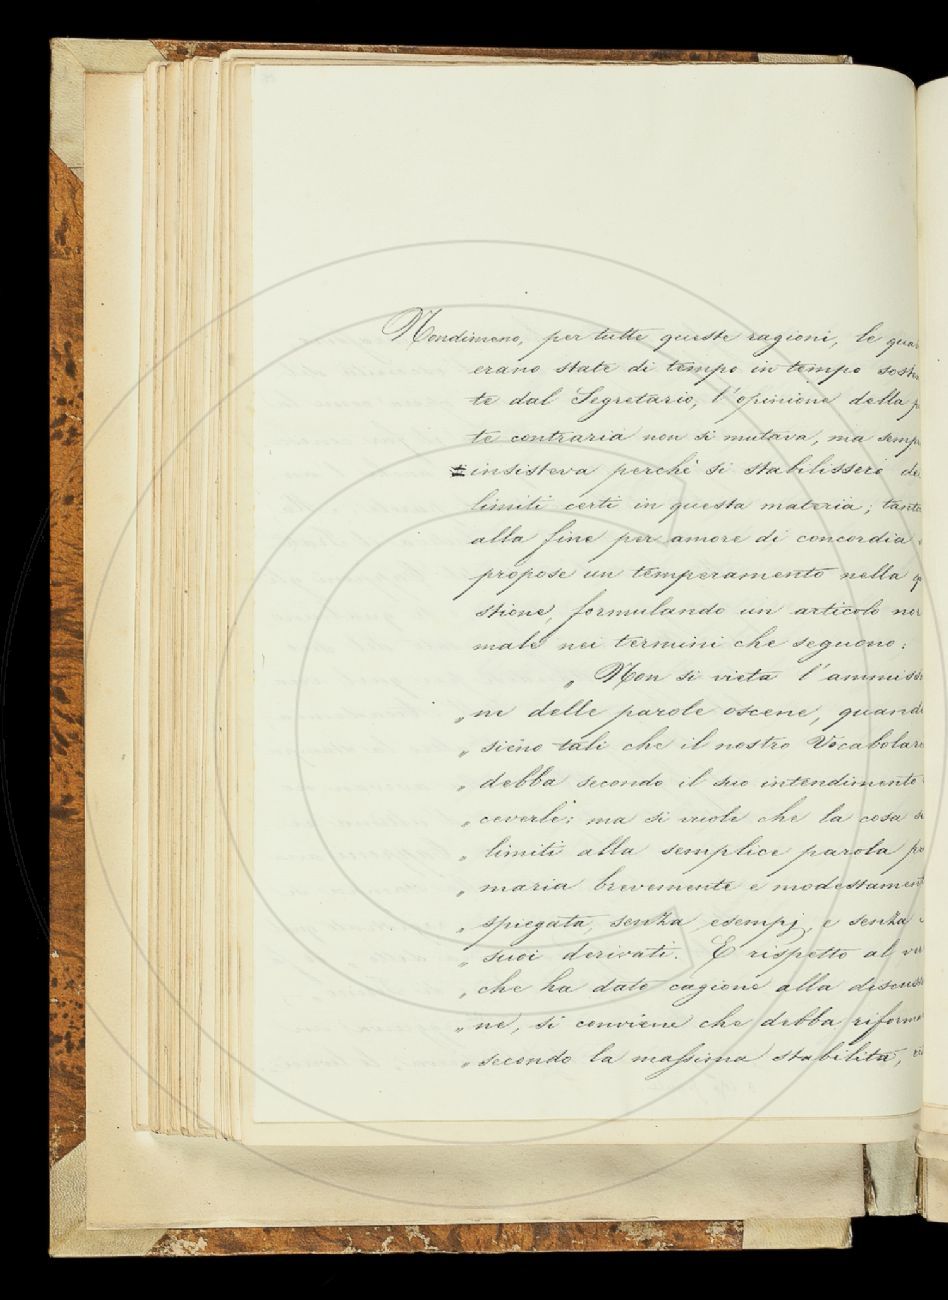 Nondimeno, per tutte queste ragioni, le qua
erano state di tempo in tempo soste
te dal Segretario, l'opinione della p
te contraria non si mutava, ma semp
insisteva perchè si stabilissero de
limiti certi in questa materia; tanto
alla fine per amore di concordia
propose un temperamento nella q
stione, formulando un articolo nor
male nei termini che seguono:
„ Non si vieta l'ammissi
„ ne delle parole oscene, quando
„ sieno tali che il nostro Vocabolari
„ debba secondo il suo intendimento
„ ceverle: ma si vuole che la cosa si
„ limiti alla semplice parola pri
„ maria brevemente e modestament
„ spiegata, senza esempj, e senza
„ suoi derivati. E rispetto al ver
„ che ha dato cagione alla discussi
„ ne, si conviene che debba riforma
„ secondo la massima stabilita,